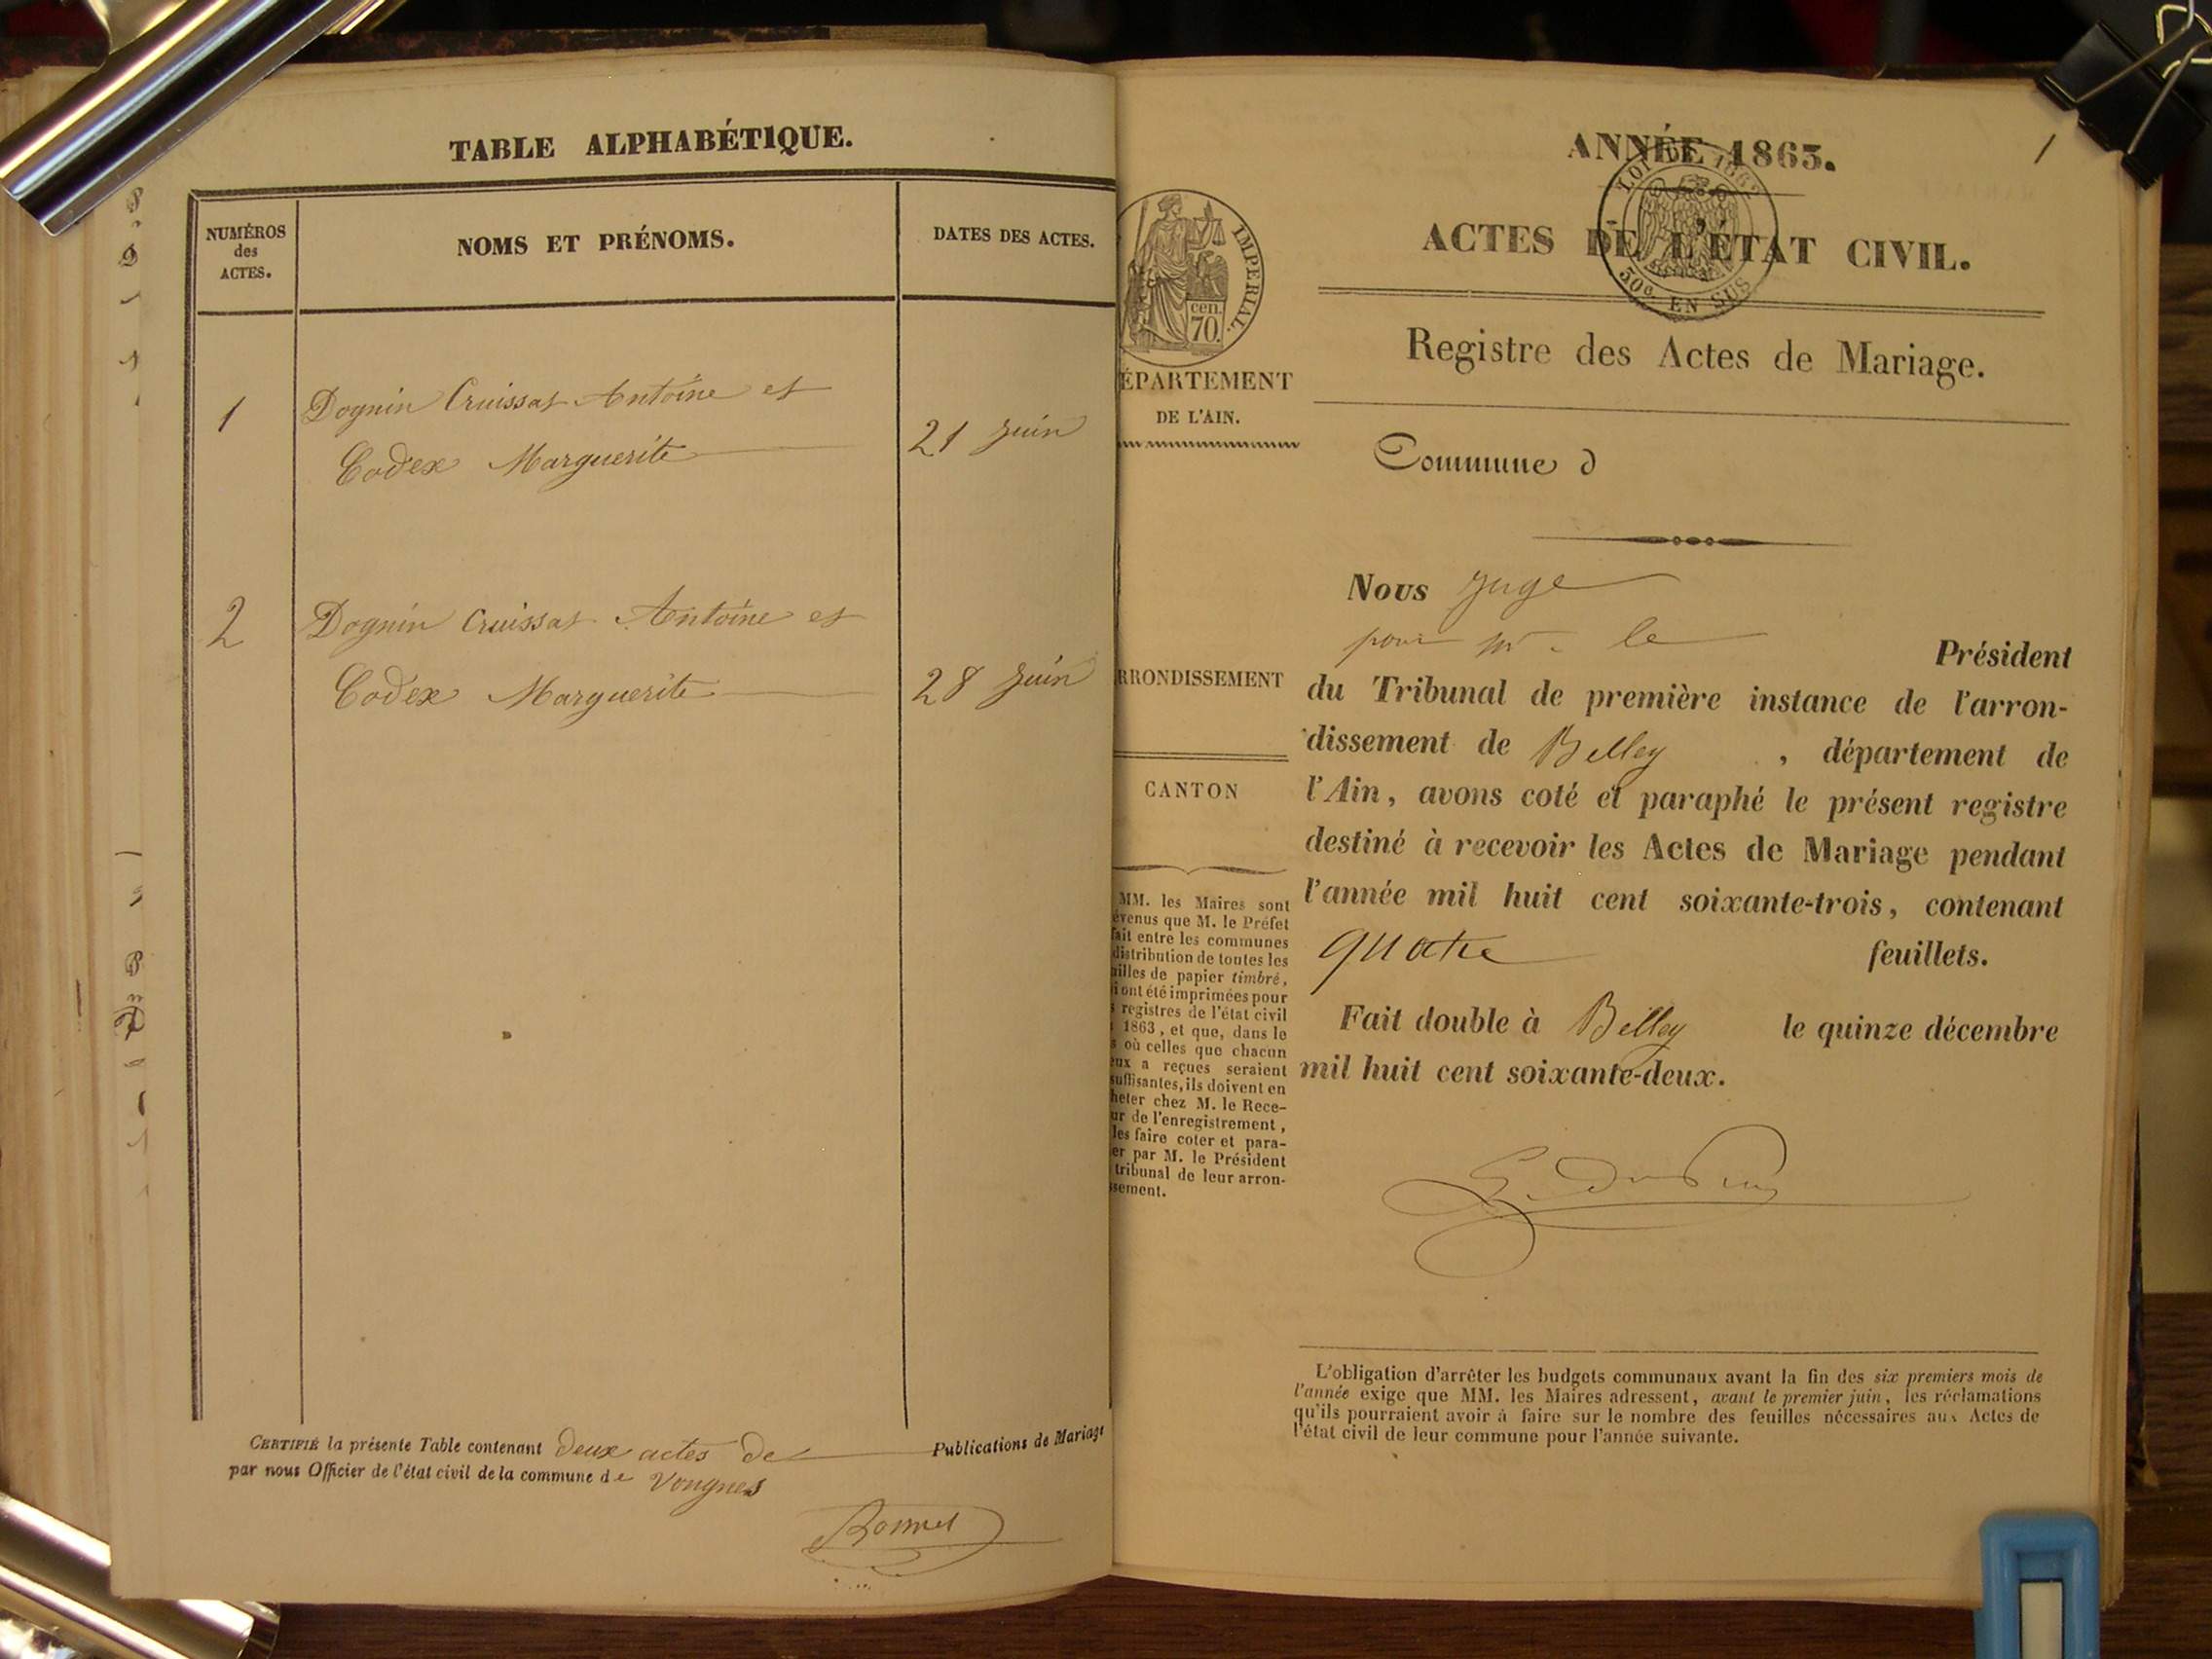 TABLE ALPHABÉTIQUE.
NUMÉROS
des
ACTES.
NOMS ET PRÉNOMS.
DATES DES ACTES.
1
Dognin Cruissat Antoine et
Codex Marguerite
21 Juin
2
Dognin Cruissat Antoine et
Codex Marguerite
28 Juin
CERTIFIÉ la présente Table contenant deux actes de Publications de Mariage
par nous Officier de l'état civil de la commune de Vongnes
Bonnet
1
ANNÉE 1863.
LOI DE 1862
50c EN SUS
ACTES DE L'ÉTAT CIVIL.
Registre des Actes de Mariage.
IMPERIAL.
cen.
70.
ÉPARTEMENT
DE L'AIN.
RRONDISSEMENT
CANTON
MM. les Maires sont
évenus que M. le Préfet
fait entre les communes
distribution de toutes les
uilles de papier timbré,
i ont été imprimées pour
s registres de l'état civil
1863, et que, dans le
s où celles que chacun
eux a reçues seraient
suffisantes, ils doivent en
heter chez M. le Rece-
ur de l'enregistrement,
les faire coter et para-
er par M. le Président
tribunal de leur arron-
ssement.
Commune d
Nous Juge
pour Mr. le Président
du Tribunal de première instance de l'arron-
dissement de Belley, département de
l'Ain, avons coté et paraphé le présent registre
destiné à recevoir les Actes de Mariage pendant
l'année mil huit cent soixante-trois, contenant
quatre feuillets.
Fait double à Belley le quinze décembre
mil huit cent soixante-deux.
L'obligation d'arrêter les budgets communaux avant la fin des six premiers mois de
l'année exige que MM. les Maires adressent, avant le premier juin, les réclamations
qu'ils pourraient avoir à faire sur le nombre des feuilles nécessaires aux Actes de
l'état civil de leur commune pour l'année suivante.